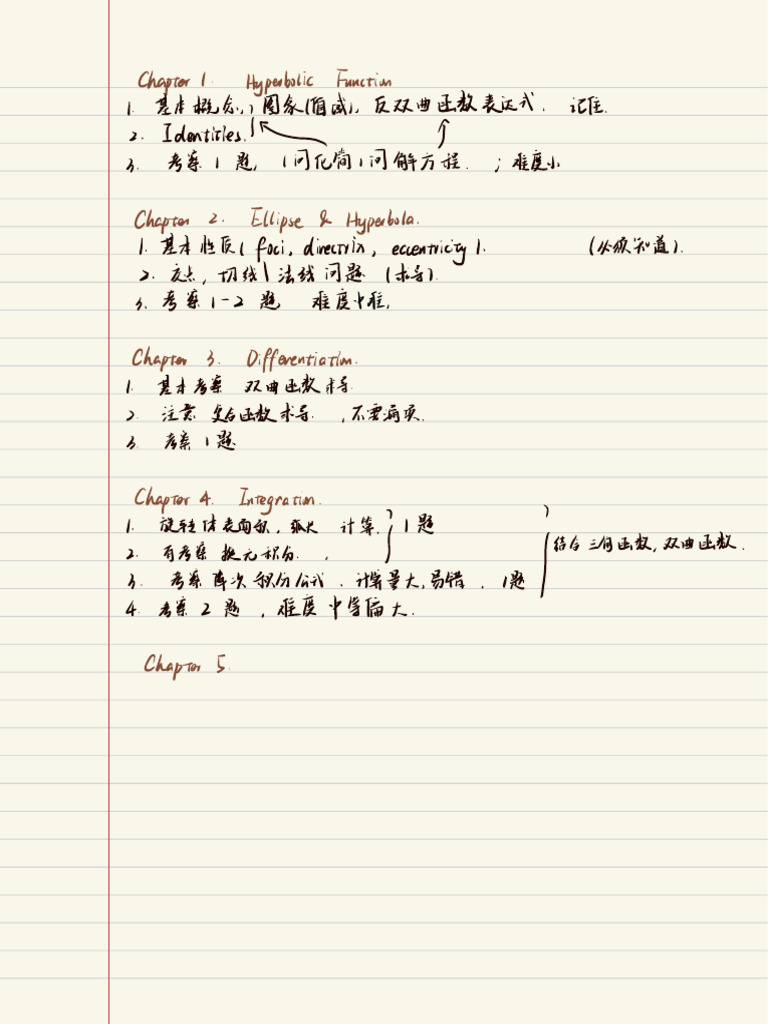 Chapter 1. Hyperbolic Function
1. 基本概念, 图象(值域), 反双曲函数表达式. 记住.
2. Identities.
3. 考察 1 题, 1问化简1问解方程. ; 难度小
Chapter 2. Ellipse & Hyperbola.
1. 基本性质( foci, directrix, eccentricity ). (必须知道).
2. 交点, 切线\法线问题 (求导).
3. 考察 1-2 题 难度中难,
Chapter 3. Differentiation.
1. 基本考察 双曲函数求导
2. 注意 复合函数求导 , 不要漏项.
3. 考察 1 题
Chapter 4. Integration.
1. 旋转体表面积, 弧长 计算. 1题
2. 有考察 换元积分. ,
结合三角函数, 双曲函数.
3. 考察 降次积分公式. 计算量大, 易错. 1题
4. 考察 2 题 , 难度中等偏大.
Chapter 5.